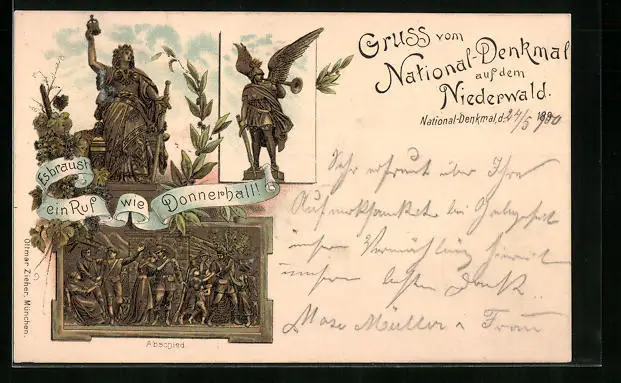 Gruss vom
National-Denkmal
auf dem
Niederwald.
National-Denkmal, d. 24/5 1890
Esbraust
ein Ruf wie Donnerhall!
Sehr erfreut über Ihre
Aufmerksamkeit bei Gelegenheit
unserer Vermählung hiermit
unseren besten Dank.
Müller u Frau
Abschied
Ottmar Zieher, München.